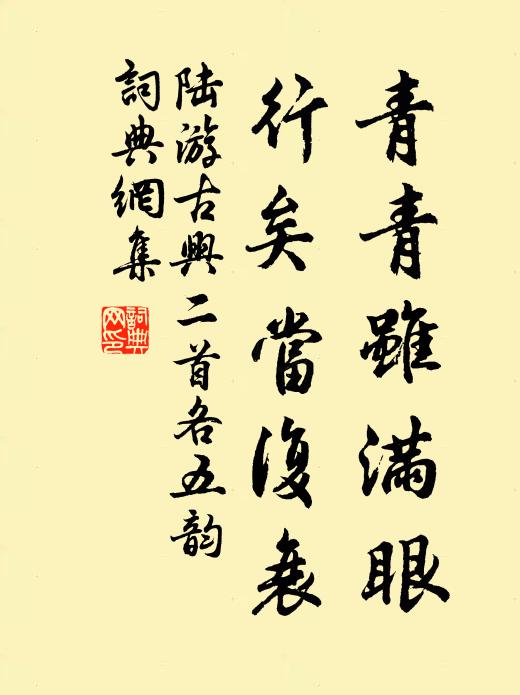 青青雖滿眼
行矣當復衰
陸游古興二首各五韵
詞典網集
詞典网印